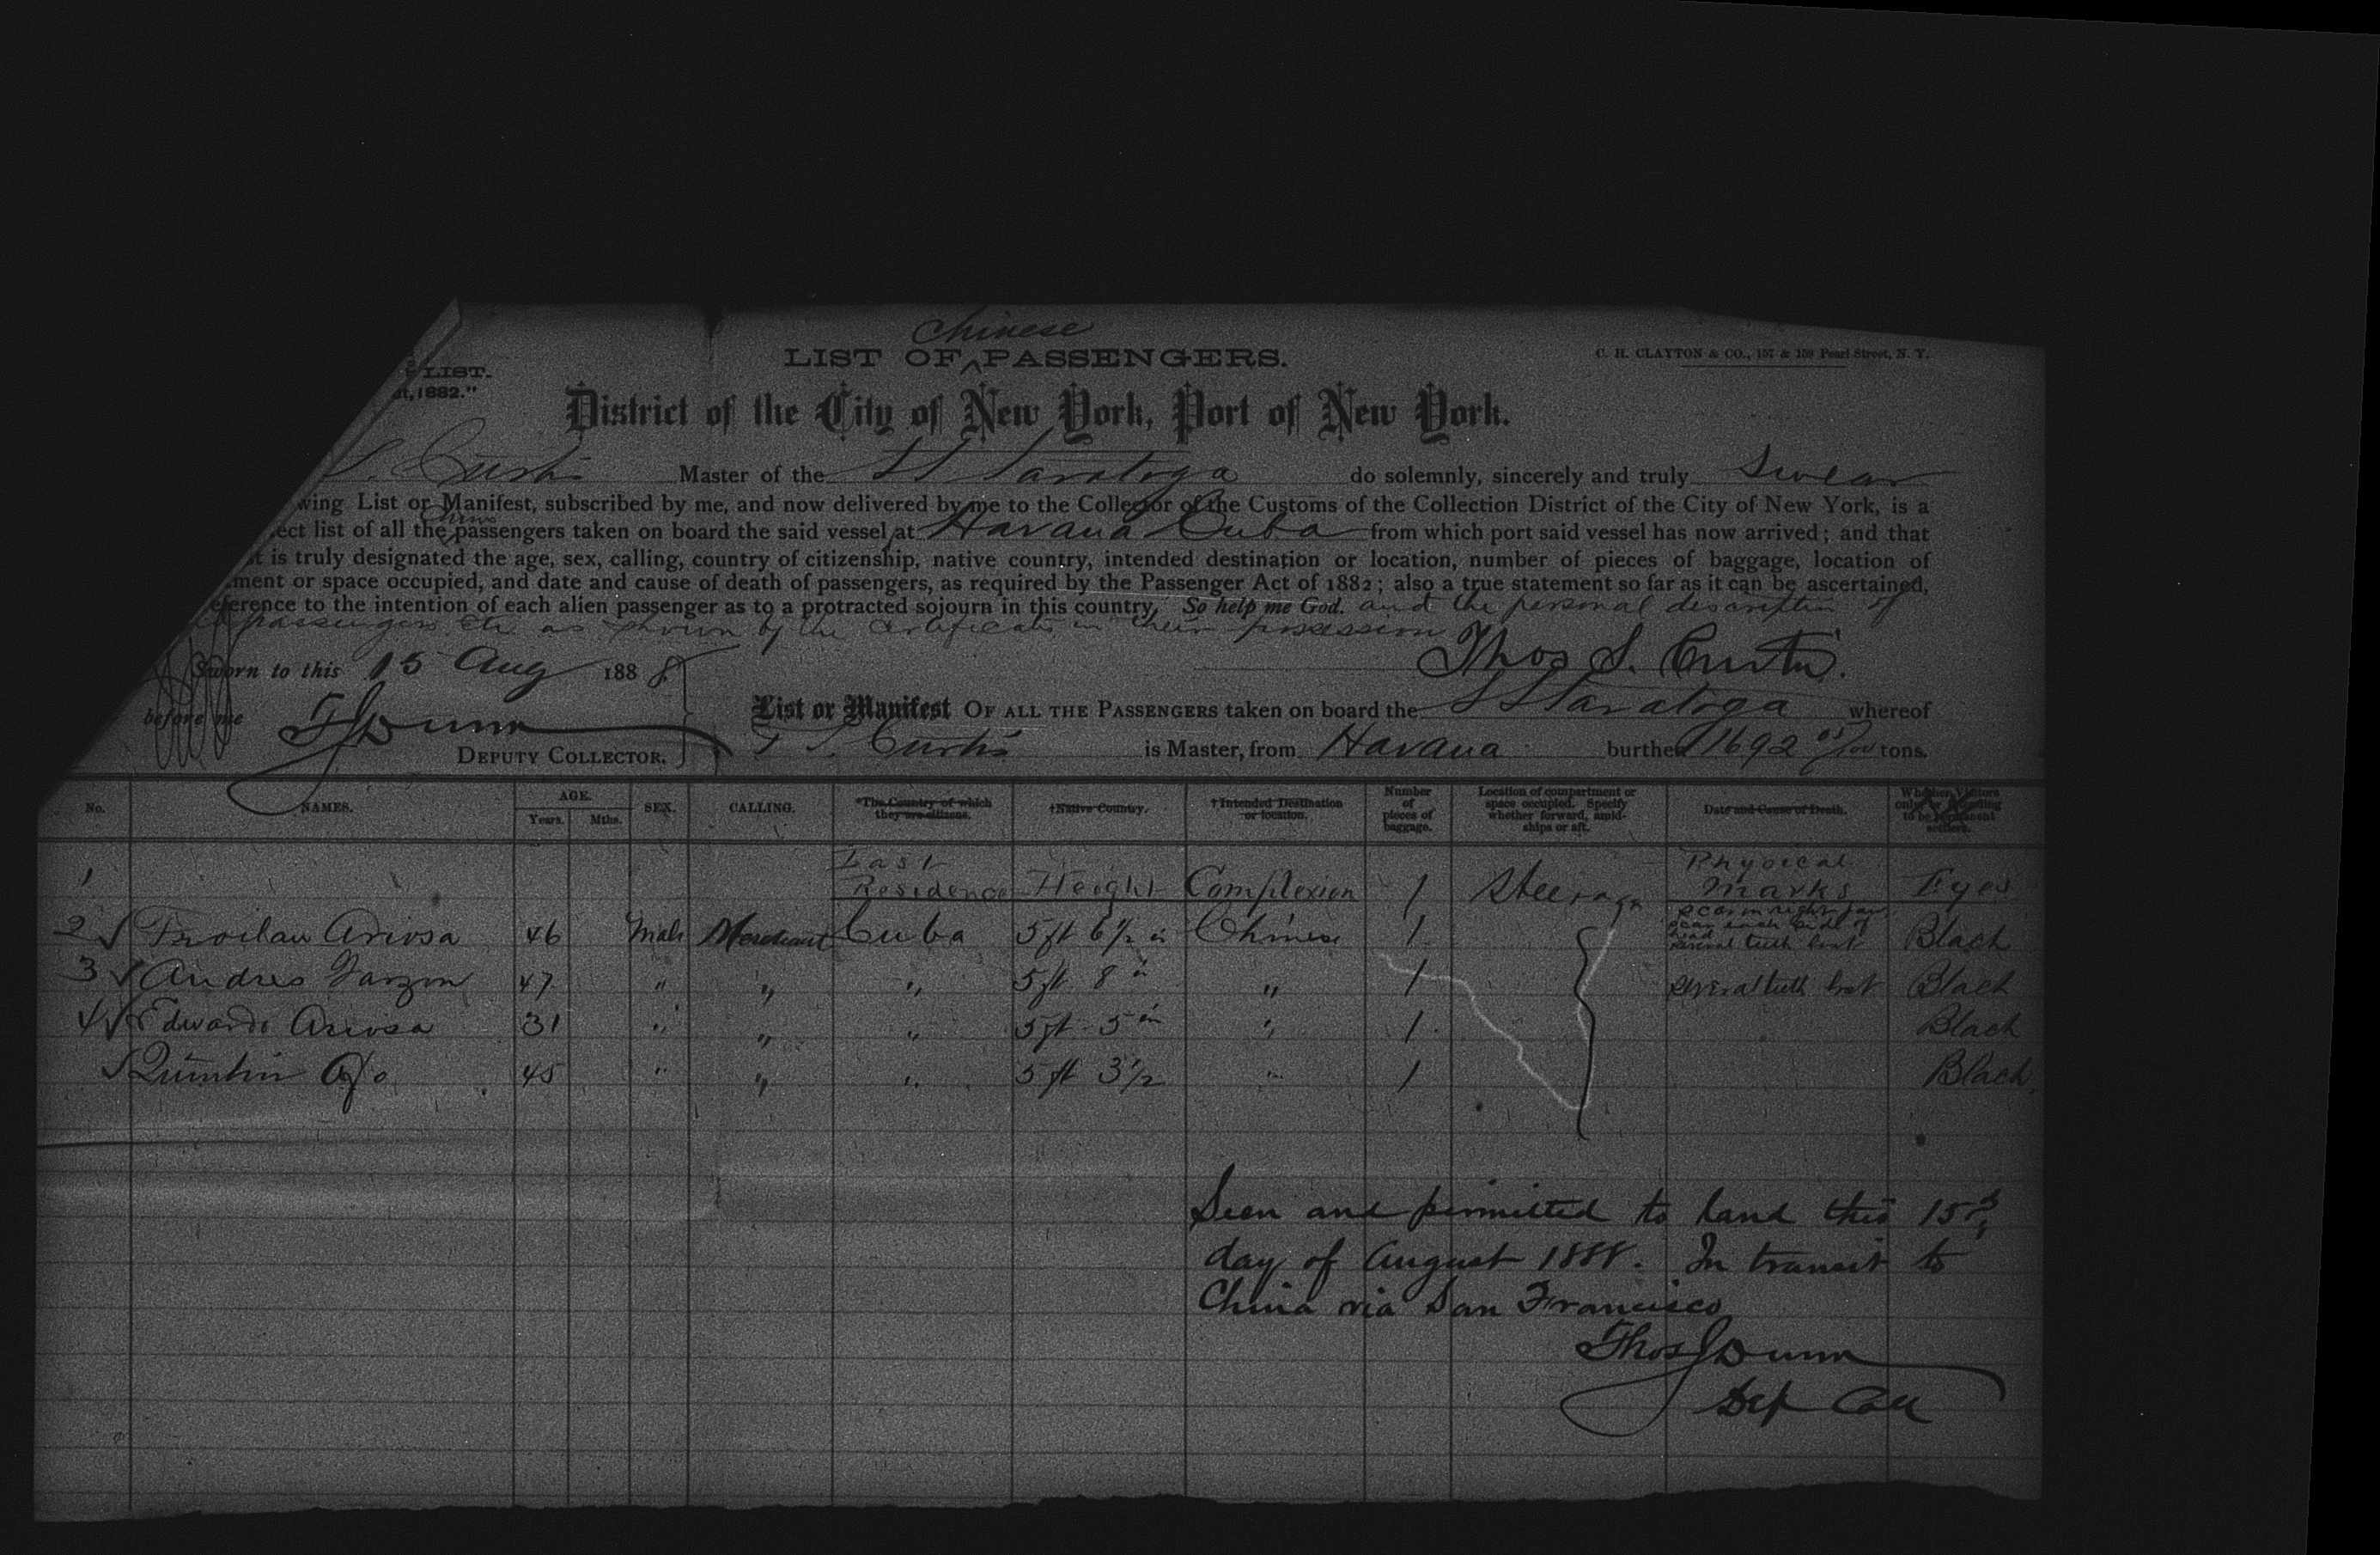 Chinese
LIST OF ^ PASSENGERS.
C. H. CLAYTON & CO., 157 & 159 Pearl Street, N. Y.
LIST.
1882."
District of the City of New York, Port of New York.
S. Curtis Master of the SS Saratoga do solemnly, sincerely and truly Swear
wing List or Manifest, subscribed by me, and now delivered by me to the Collector of the Customs of the Collection District of the City of New York, is a
ect list of all the passengers taken on board the said vessel at Havana Cuba from which port said vessel has now arrived; and that
is truly designated the age, sex, calling, country of citizenship, native country, intended destination or location, number of pieces of baggage, location of
ment or space occupied, and date and cause of death of passengers, as required by the Passenger Act of 1882; also a true statement so far as it can be ascertained,
eference to the intention of each alien passenger as to a protracted sojourn in this country. So help me God. and the personal description of
passengers etc. as shown by the certificates in their possession
Thos S. Curtis.
Sworn to this 15 Aug 1888
before me
TJDunn
DEPUTY COLLECTOR.
List or Manifest OF ALL THE PASSENGERS taken on board the SS Saratoga whereof
T S. Curtis is Master, from Havana burthen 1692 tons.
No. NAMES. AGE. Years. Mths. SEX. CALLING. *The Country of which they are citizens. †Native Country. †Intended Destination or location. Number of pieces of baggage. Location of compartment or space occupied. Specify whether forward, amidships or aft. Date and Cause of Death. Whether Visitors only or intending to be permanent settlers.
1 Last Residence Height Complexion 1 Steerage Physical marks Eyes
2 √ Froilan Ariosa 46 Male Merchant Cuba 5 ft 6 1/2 in Chinese 1 scar on right jaw scar each side of head several teeth lost Black
3 √ Andres Garzon 47 " " " 5 ft 8 in " 1 several teeth lost Black
4 √ Edwardo Ariosa 31 " " " 5 ft 5 in " 1 Black
√ Quintin Ajo 45 " " " 5 ft 3 1/2 " 1 Black
Seen and permitted to land this 15
day of August 1888. In transit to
China via San Francisco
Thos J Dunn
Dep Coll